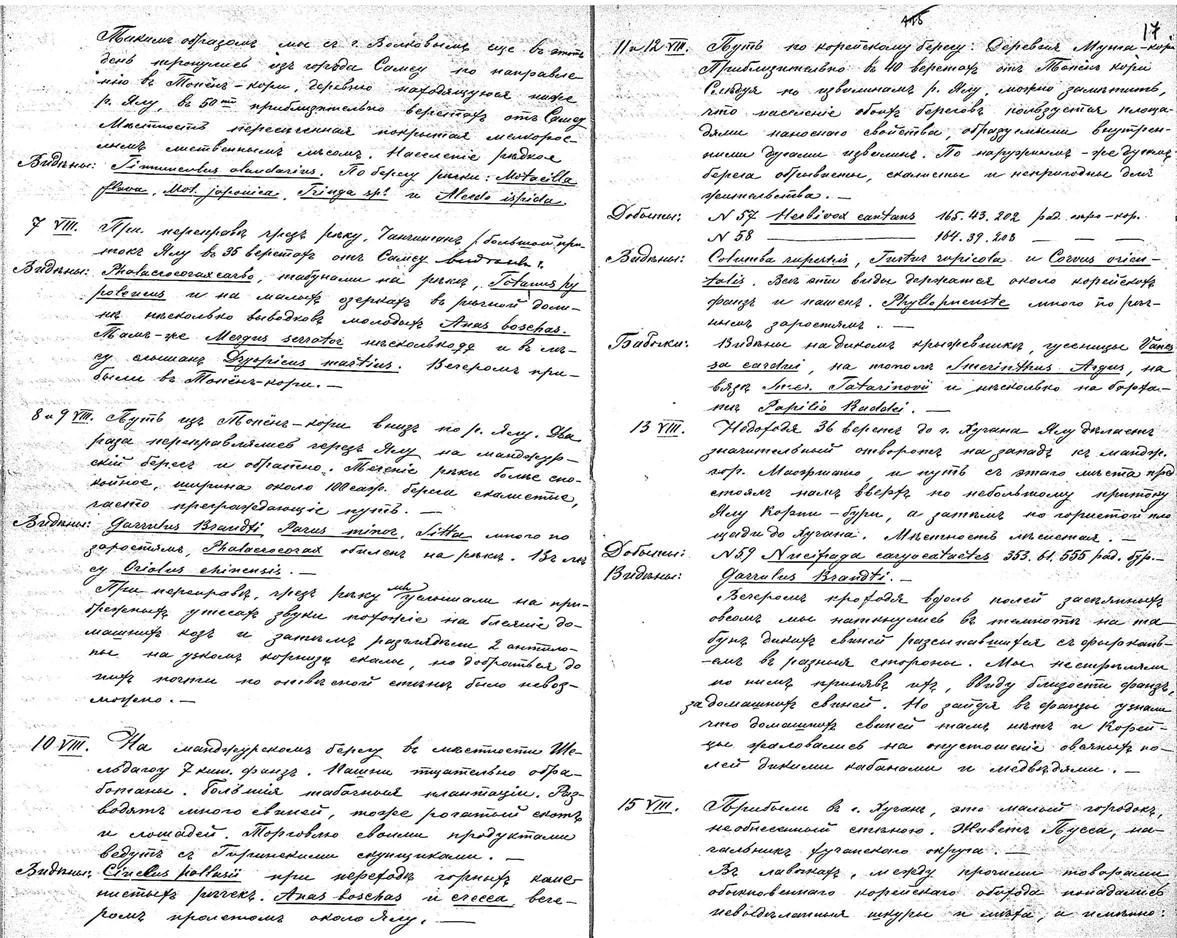 Такимъ образомъ мы съ г. Волковымъ еще въ этотъ
день тронулись изъ города Самсу по направле-
нію въ Топёнъ-кори, деревню находящуюся ниже
р. Ялу, въ 50ти приблизительно верстахъ отъ Самсу
Мѣстность пересѣченная покрытая мелкорос-
лымъ лиственнымъ лѣсомъ. Населеніе рѣдкое
Видѣны: Tinnunculus alaudarius. По берегу рѣки: Motacilla
flava, Mot. japonica, Tringa sp? и Alcedo ispida
7 VIII. При переправѣ чрезъ рѣку, (большой при-
токъ Ялу въ 35 верстахъ отъ Самсу видѣны:
Видѣны: Phalacrocorax carbo, табунами на рѣкѣ, Totanus hy
poleucus и на малыхъ озеркахъ въ рѣчной доли-
нѣ нѣсколько выводковъ молодыхъ Anas boschas.
Тамъ-же Mergus serrator нѣсколько и въ лѣ-
су слышанъ Dryopicus martius. Вечеромъ при-
были въ Топёнъ-кори. —
8 и 9 VIII. Путь изъ Топёнъ-кори внизъ по р. Ялу. Два
раза переправлялись черезъ Ялу на манджур-
скій берегъ и обратно. Теченіе рѣки болѣе спо-
койное, ширина около 100 саж. берега скалистые,
часто преграждающіе путь. —
Видѣны: Garrulus Brandti, Parus minor, Sitta много по
заростямъ, Phalacrocorax обиленъ на рѣкѣ. Въ лѣ
су Oriolus chinensis. —
При переправѣ, чрезъ рѣку мы услышали на при-
брежныхъ утесахъ звуки похожіе на блеяніе до-
машнихъ козъ и затѣмъ разглядѣли 2 антило-
пы на узкомъ корнизѣ скалы, но добраться до
нихъ почти по отвѣсной стѣнѣ было невоз-
можно. —
10 VIII. На манджурскомъ берегу въ мѣстности Ше-
льдагоу 7 кит. фанзъ. Пашни тщательно обра-
ботаны. Большія табачныя плантаціи. Раз-
водятъ много свиней, тоже рогатый скотъ
и лошадей. Торговлю своими продуктами
ведутъ съ Гиринскими скупщиками. —
Видѣны: Cinclus pallasii при переходѣ горныхъ каме-
нистыхъ рѣчекъ. Anas boschas и crecca вече-
ромъ пролетомъ около Ялу. —
17
11 и 12 VIII. Путь по корейскому берегу: Деревня Мупха-кори
Приблизительно въ 40 верстахъ отъ Топёнъ кори
Слѣдуя по извилинамъ р. Ялу, можно замѣтить,
что населеніе обоихъ береговъ пользуется площа-
дями наноснаго свойства, образуемыми внутрен-
ними дугами извилинъ. По наружнымъ-же дугамъ
берега обрывисты, скалисты и непригодны для
жительства. —
Добыты: N 57 Herbivox cantans 165. 43. 202 рад. сѣро-кор.
N 58 ——— 164. 39. 203 — — —
Видѣны: Columba rupestris, Turtur rupicola и Corvus orien-
talis. Всѣ эти виды держатся около корейскихъ
фанзъ и пашенъ. Phyllopneuste много по рѣч-
нымъ заростямъ. —
Бабочки: Видѣны на дикомъ крыжевникѣ, гусеницы Vanes
sa cardui, на тополѣ Smerinthus Argus, на
вязѣ Smer. Tatarinovii и нѣсколько на
Papilio Raddei. —
13 VIII. Недоходя 36 верстъ до г. Хучана Ялу дѣлаетъ
значительный отворотъ на западъ къ манджу.
гор. Маоэршано и путь съ этаго мѣста пред
стоялъ намъ вверхъ по небольшому притоку
Ялу Корти-бури, а затѣмъ по гористой пло
щади до Хучана. Мѣстность лѣсистая. —
Добыты: N 59 Nucifraga caryocatactes 353. 61. 555 рад. бур.
Видѣны: Garrulus Brandti. —
Вечеромъ проходя вдоль полей засѣянныхъ
овсомъ мы наткнулись въ темнотѣ на та-
бунъ дикихъ свиней разсыпавшихся съ фыркань-
емъ въ разныя стороны. Мы не стрѣляли
по нимъ принявъ ихъ, ввиду близости фанзъ,
за домашнихъ свиней. Но зайдя въ фанзы узнали
что домашнихъ свиней тамъ нѣтъ и Корей-
цы жаловались на опустошеніе овсяныхъ по-
лей дикими кабанами и медвѣдями. —
15 VIII. Прибыли въ г. Хучанъ, это малый городокъ,
необнесенный стѣною. Живетъ Пусса, на-
чальникъ хучанскаго округа. —
Въ лавкахъ, между прочими товарами
обыкновеннаго корейскаго обихода попадались
невыдѣланныя шкуры и мѣха, а именно: